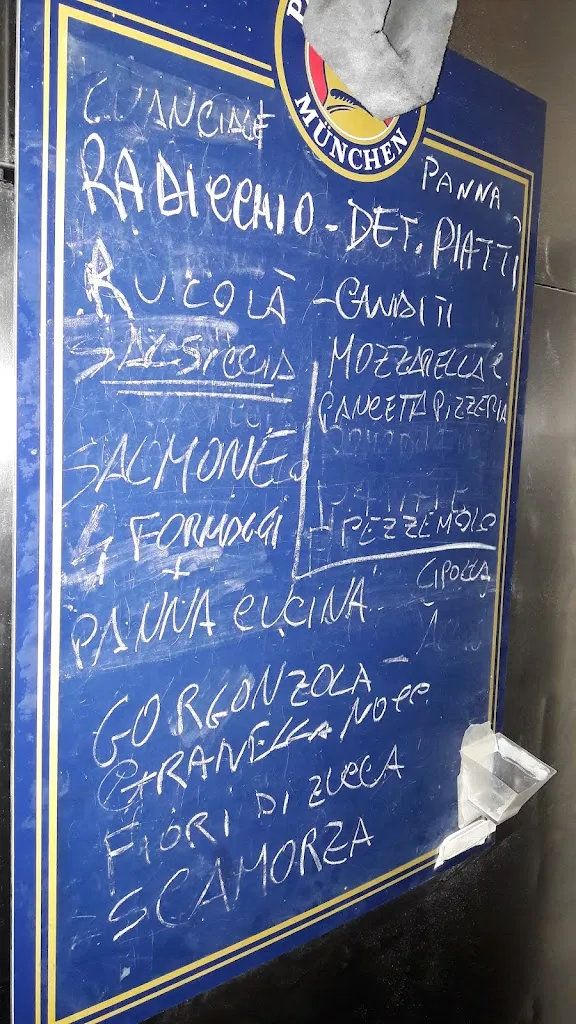 MÜNCHEN
GUANCIALE
PANNA
RADICCHIO - DET. PIATTI
RUCOLA - CANDITI
SALSICCIA MOZZARELLA
PANCETA PIZZERIA
SALMONE
4 FORMAGGI PEZZEMOLO
+
CIPOLLA
PANNA CUCINA
GORGONZOLA
GRANELLA NOCE
FIORI DI ZUCCA
SCAMORZA